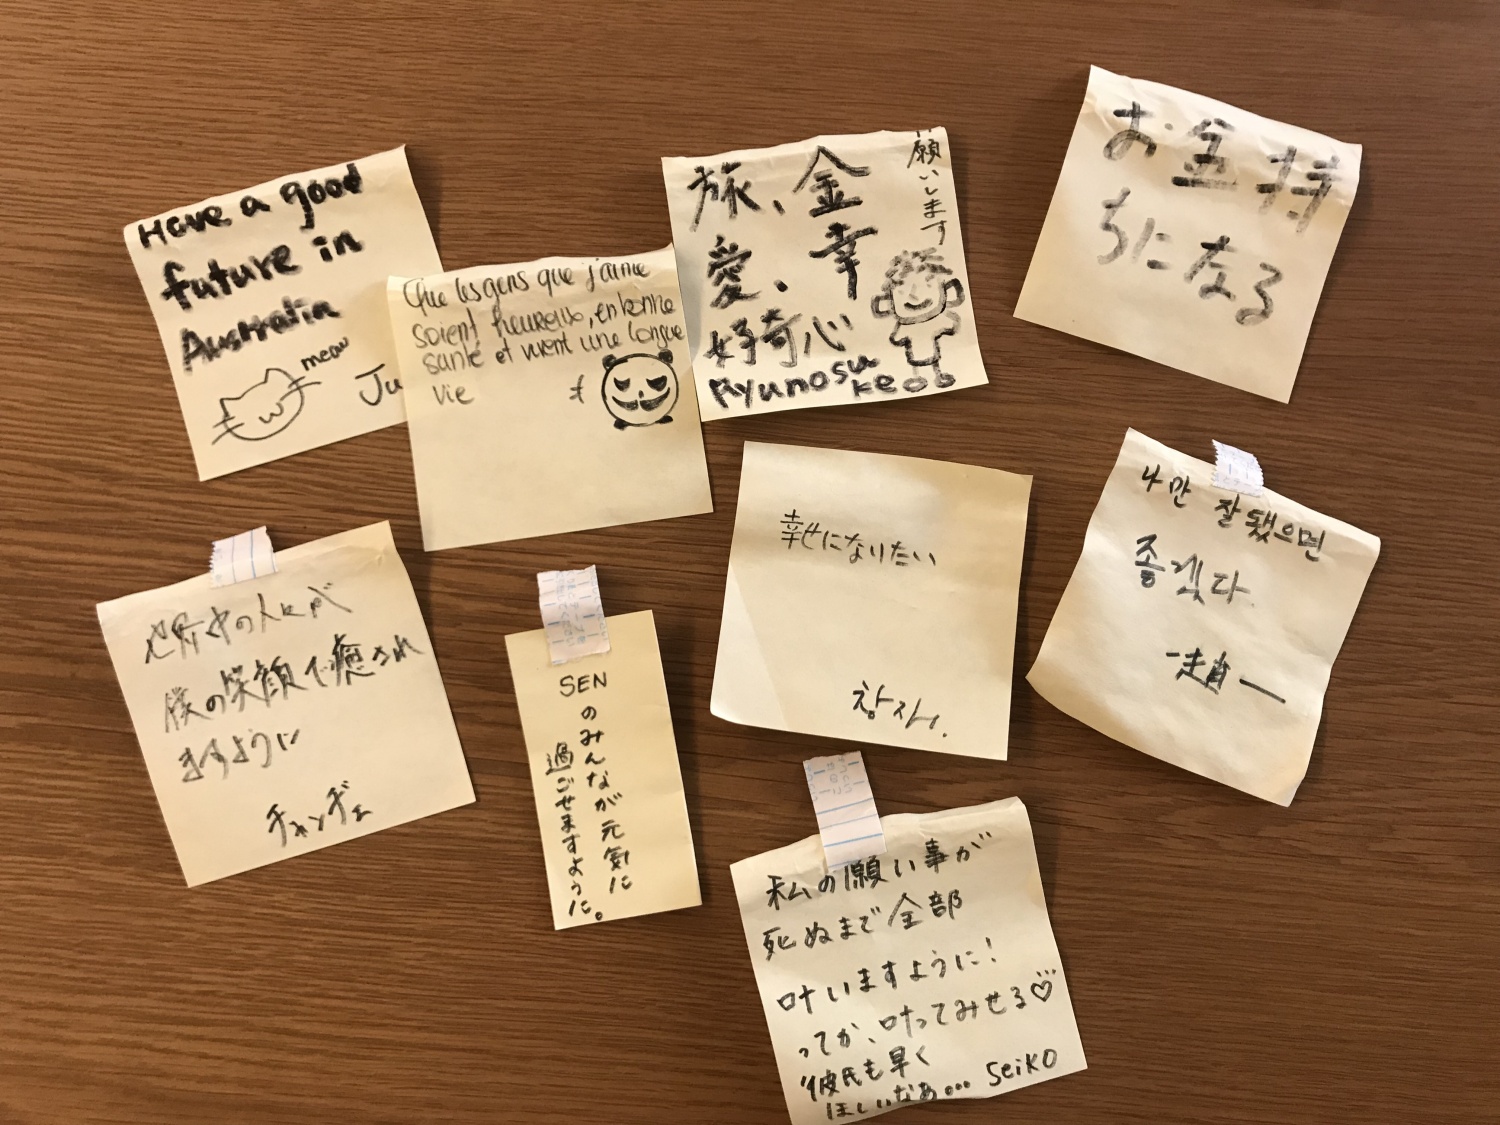 Have a good
future in
Australia
meow
Ju
Que les gens que j'aime
soient heureux, en bonne
santé et vivent une longue
vie
旅、金
愛、幸
好奇心
Ryunosu
ke
願いします
お金持
ちになる
世界中の人にが
僕の笑顔で癒され
ますように
チャンヂェ
SEN
のみんなが元気に
過ごせますように。
幸せになりたい
나만 잘됐으면
좋겠다.
私の願い事が
死ぬまで全部
叶いますように!
ってか、叶ってみせる♡
彼氏も早く
ほしいなあ... Seiko